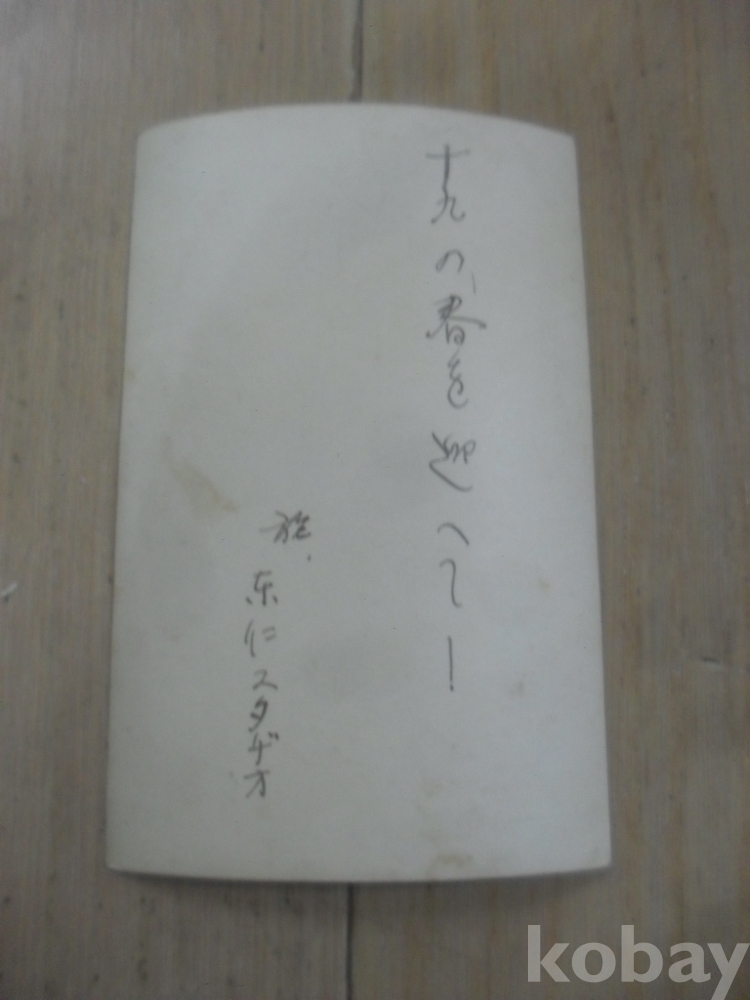 十九の春を迎へて—
於.
東仁スタヂオ
kobay